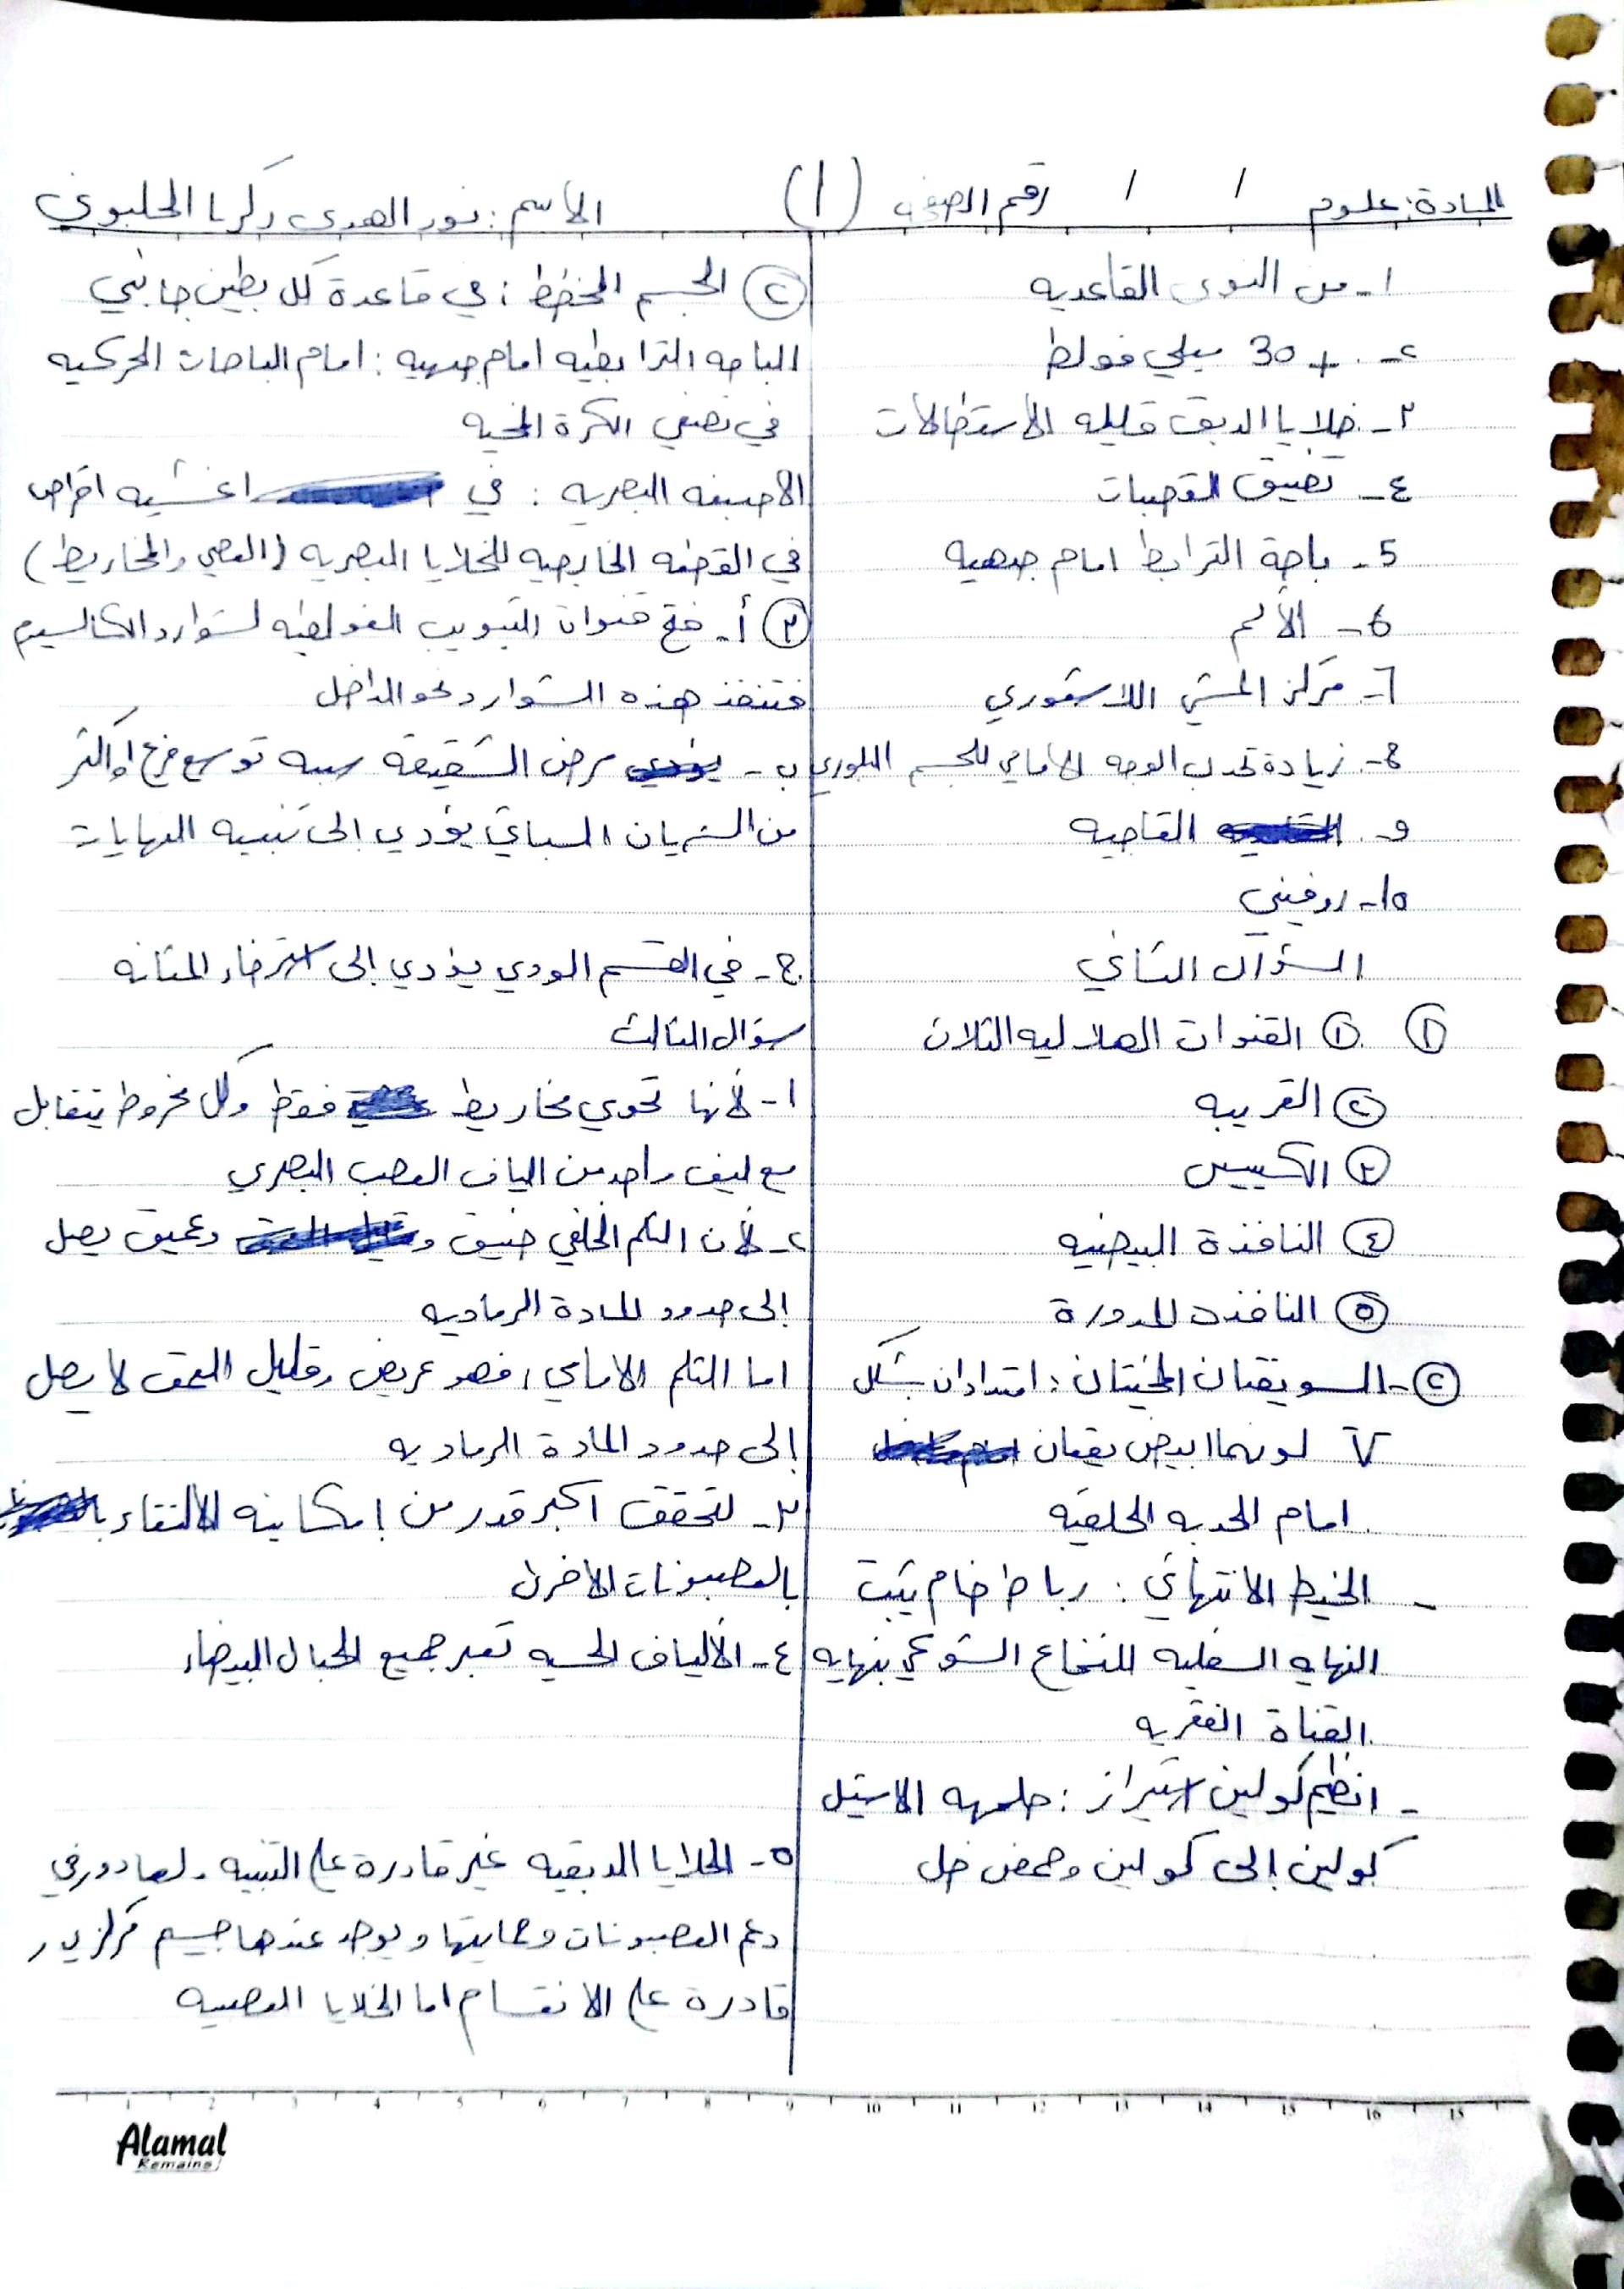 المادة: علوم / / رقم الصفحه (١) الاسم: نور الهدى زكريا الحلبوني
١- من النوى القاعديه
٢- +30 ميلي فولط
٣- خلايا الدبق قليله الاستطالات
٤- تضيق القصبات
5- باحة الترابط امام جبهيه
6- الألم
٦- مركز المشي اللاشعوري
٨- زيادة تحدب الوجه الامامي للجسم البلوري
و- القاصيه
١٥- روفيني
السؤال الثاني
① ① القنوات الهلاليه الثلاث
② القريبه
③ الكييس
④ النافذة البيضيه
⑤ النافذة المدورة
②- السويقتان المخيتان: امتدادان بشكل
V لونهما ابيض يقعان
امام الحدبه الحلقيه
- الخيط الانتهائي: رباط ضام يثبت
النهايه السفليه للنخاع الشوكي بنهايه
القناة الفقريه
- انظيم كولين استيراز: حلمهه الاستيل
كولين إلى كولين وحمض خل
② الجسم المخطط: في قاعدة كل بطين جانبي
الباحه الترابطيه امام جبهيه: امام الباحات الحركيه
في نصفي الكرة المخيه
الاصبغه البصريه: في اغشيه اقراص
في القطعه الخارجيه للخلايا البصريه (العصي والمخاريط)
③ أ- فتح قنوات التبويب الفولطيه لشوارد الكالسيوم
فتنفذ هذه الشوارد نحو الداخل
ب- مرض الشقيقة سببه توسع فرع او اكثر
من الشريان السباتي يؤدي إلى تنبيه النهايات
ج- في القسم الودي يؤدي إلى استرخاء المثانه
سؤال الثالث
١- لأنها تحوي مخاريط فقط وكل مخروط يتقابل
مع ليف واحد من الياف العصب البصري
٢- لأن الثلم الخلفي ضيق وعميق يصل
إلى حدود المادة الرماديه
اما الثلم الامامي، فهو عريض وقليل العمق لا يصل
إلى حدود المادة الرماديه
٣- لتحقق اكبر قدر من إمكانيه الالتقاء
بالعصبونات الاخرى
٤- الألياف الحسيه تعبر جميع الحبال البيضاء
٥- الخلايا الدبقيه غير قادرة على التنبيه ولها دور في
دعم العصبونات وحمايتها ويوجد عندها جسيم مركزي و
قادرة على الانقسام اما الخلايا العصبيه
1 2 3 4 5 6 7 8 9 10 11 12 13 14 15 16 15
Alamal
Remains